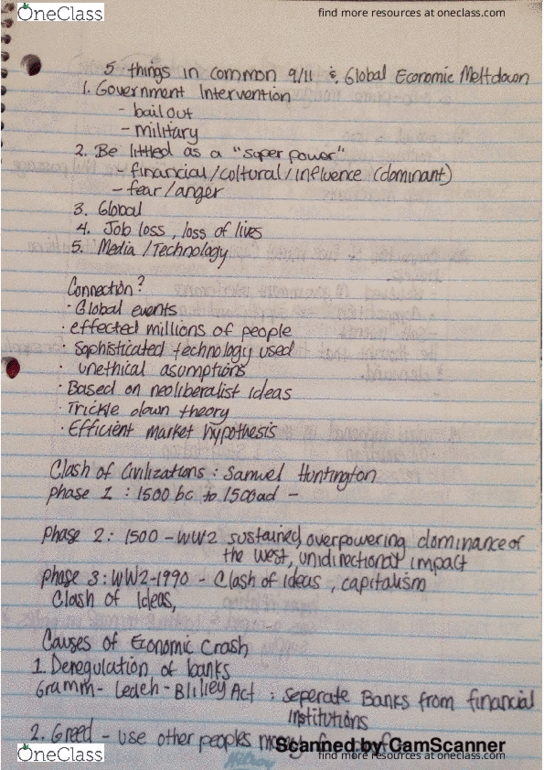 OneClass
find more resources at oneclass.com
5 things in common 9/11 & Global Economic Meltdown
1. Government Intervention
- bail out
- military
2. Be littled as a "super power"
- financial/cultural/influence (dominant)
- fear/anger
3. Global
4. Job loss, loss of lives
5. Media/Technology
Connection?
· Global events
· effected millions of people
· Sophisticated technology used
· unethical asumptions
· Based on neoliberalist ideas
· Trickle down theory
· Efficient market hypothesis
Clash of Civilizations : Samuel Huntington
phase 1 : 1500 bc to 1500 ad -
Phase 2 : 1500 - WW2 sustained, overpowering dominance of
the west, unidirectional impact
phase 3 : WW2-1990 - Clash of Ideas, capitalism
Clash of Ideas,
Causes of Economic Crash
1. Deregulation of banks
Gramm-Leach-Blilley Act : seperate Banks from financial
institutions
2. Greed - use other peoples money
Scanned by CamScanner
OneClass
find more resources at oneclass.com